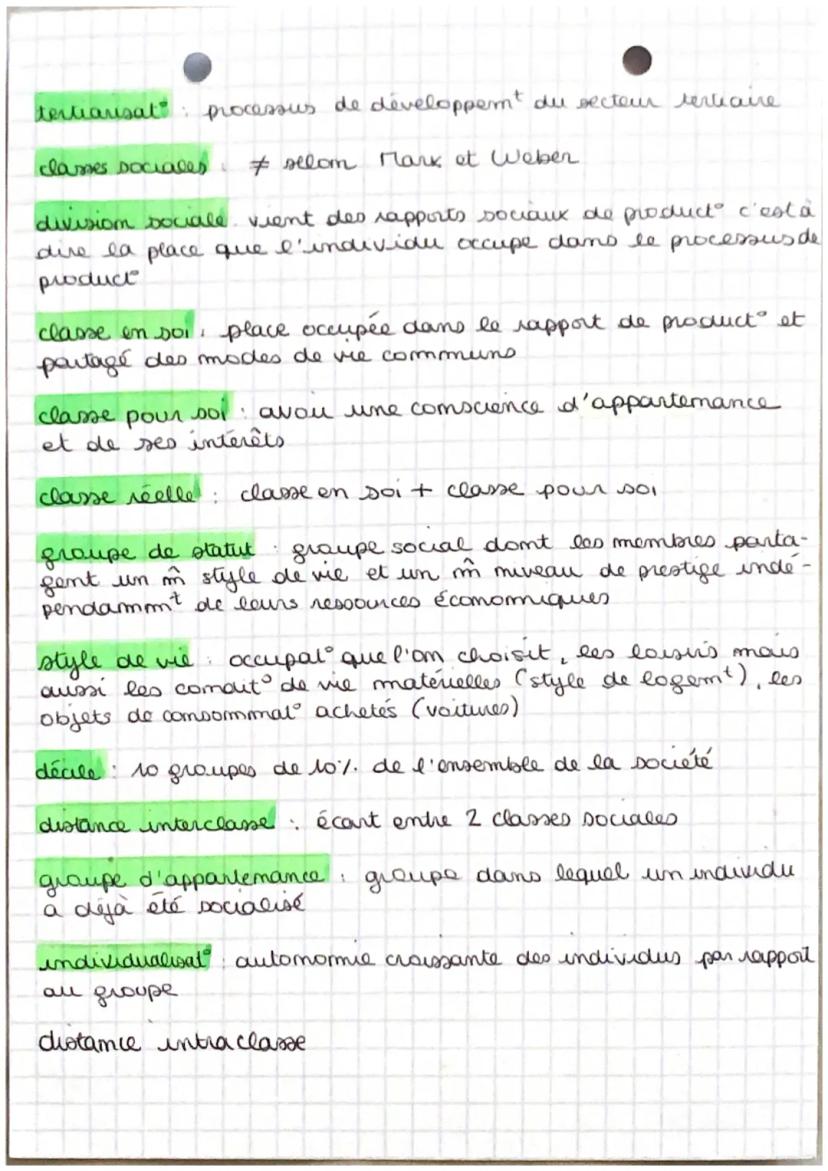 tertiarisat° : processus de développem^t du secteur tertiaire
classes sociales : ≠ selon Marx et Weber
division sociale : vient des rapports sociaux de product° c'est à
dire la place que l'individu occupe dans le processus de
product°
classe en soi : place occupée dans le rapport de product° et
partagé des modes de vie communs
classe pour soi : avoir une conscience d'appartenance
et de ses intérêts
classe réelle : classe en soi + classe pour soi
groupe de statut : groupe social dont les membres parta-
gent un m̂ style de vie et un m̂ niveau de prestige indé-
pendamm^t de leurs ressources économiques
style de vie : occupat° que l'on choisit, les loisirs mais
aussi les condit° de vie matérielles (style de logem^t), les
objets de consommat° achetés (voitures)
décile : 10 groupes de 10% de l'ensemble de la société
distance interclasse : écart entre 2 classes sociales
groupe d'appartenance : groupe dans lequel un individu
a déjà été socialisé
individualisat° : autonomie croissante des individus par rapport
au groupe
distance intraclasse